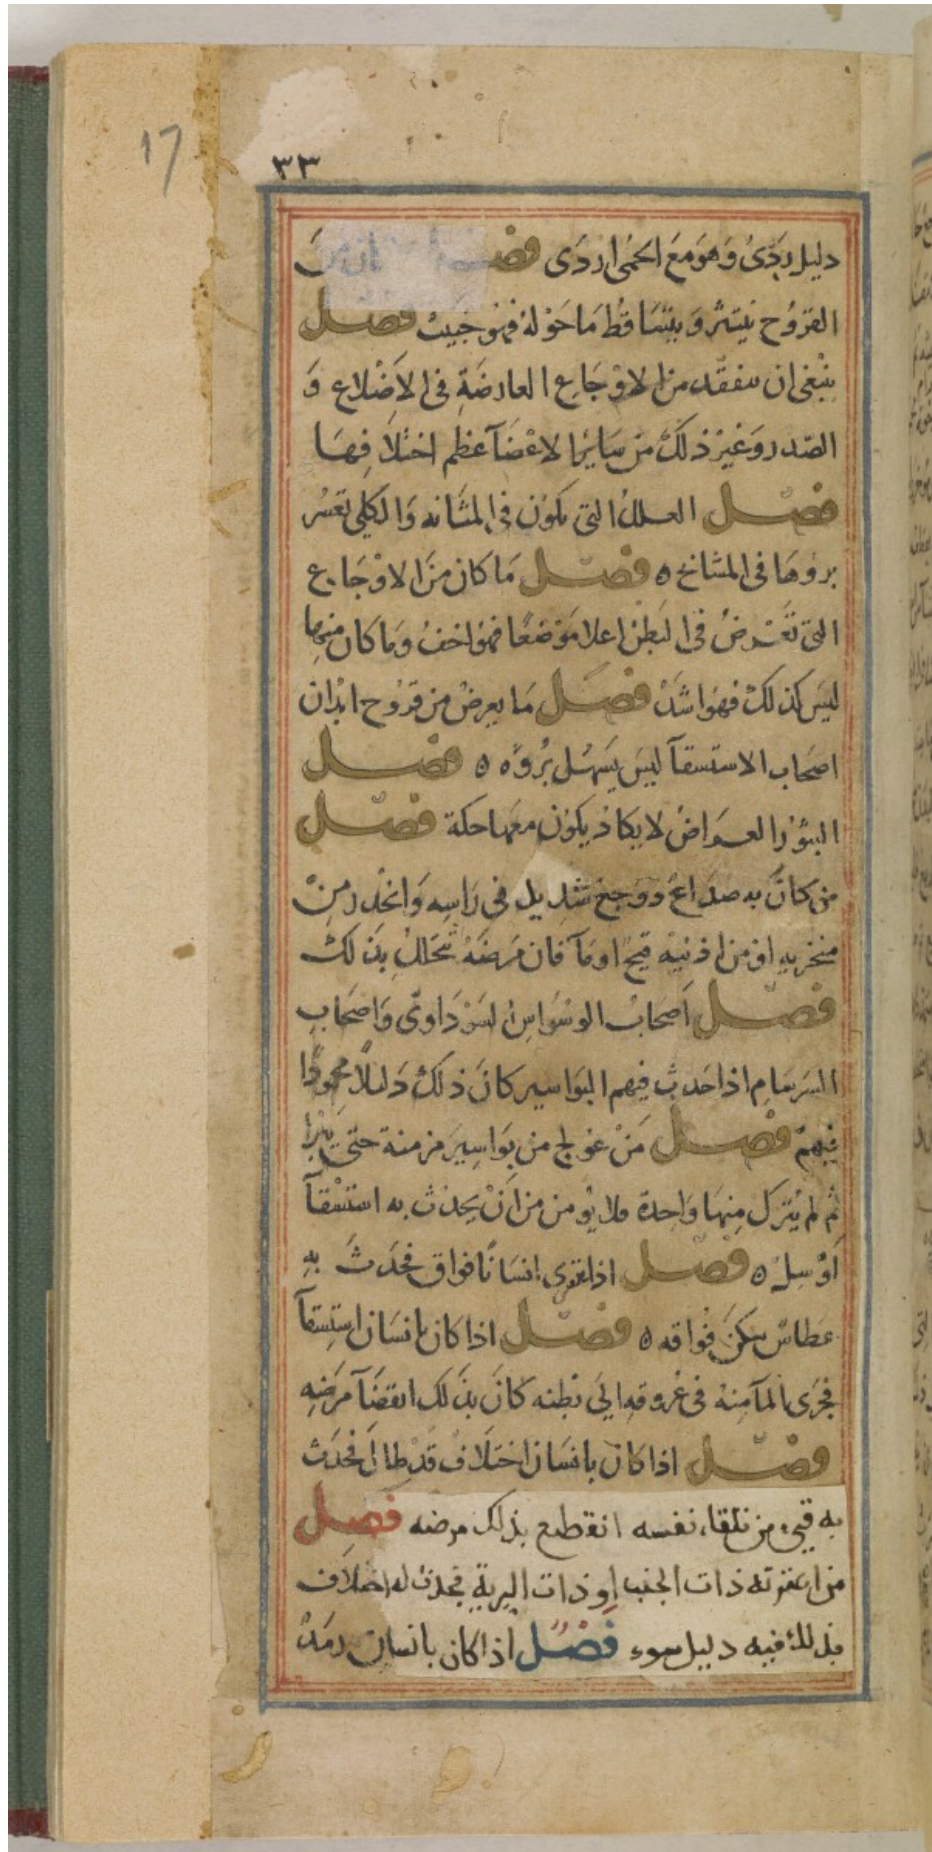 17
٣٣
دليل ردى وهو مع الحمى اردى فصل
القروح ينتثر ويتساقط ما حوله فهو خبيث فصل
ينبغى ان يتفقد من الاوجاع العارضة فى الاضلاع و
الصدر وغير ذلك من ساير الاعضآ عظم اختلافها
فصل العلل التى تكون فى المثانه والكلى تعسر
بروها فى المشايخ ه فصل ما كان من الاوجاع
التى تعرض فى البطن اعلا موضعا فهو اخف وما كان منها
ليس كذلك فهو اشد فصل ما يعرض من قروح ابدان
اصحاب الاستسقآ ليس يسهل بروه ه فصل
البثور العراض لا يكاد يكون معها حكة فصل
من كان به صداع ووجع شديد فى راسه وانحدر من
منخريه او من اذنيه قيح او مآ فان مرضه تحلل بذلك
فصل اصحاب الوسواس السوداوى واصحاب
السرسام اذا حدث فيهم البواسير كان ذلك دليلا محمودا
فيهم فصل من عولج من بواسير مزمنة حتى يبرا
ثم لم يترك منها واحدة فلا يومن من ان يحدث به استسقآ
او سل ه فصل اذا اعترى انسانا فواق فحدث به
عطاس سكن فواقه ه فصل اذا كان بانسان استسقآ
فجرى المآ منه فى عروقه الى بطنه كان بذلك انقضآ مرضه
فصل اذا كان بانسان اختلاف قد طال فحدث
به قيء من تلقاء نفسه انقطع بذلك مرضه فصل
من اعترته ذات الجنب او ذات الرية فحدث له اختلاف
فذلك فيه دليل سوء فصل اذا كان بانسان رمد